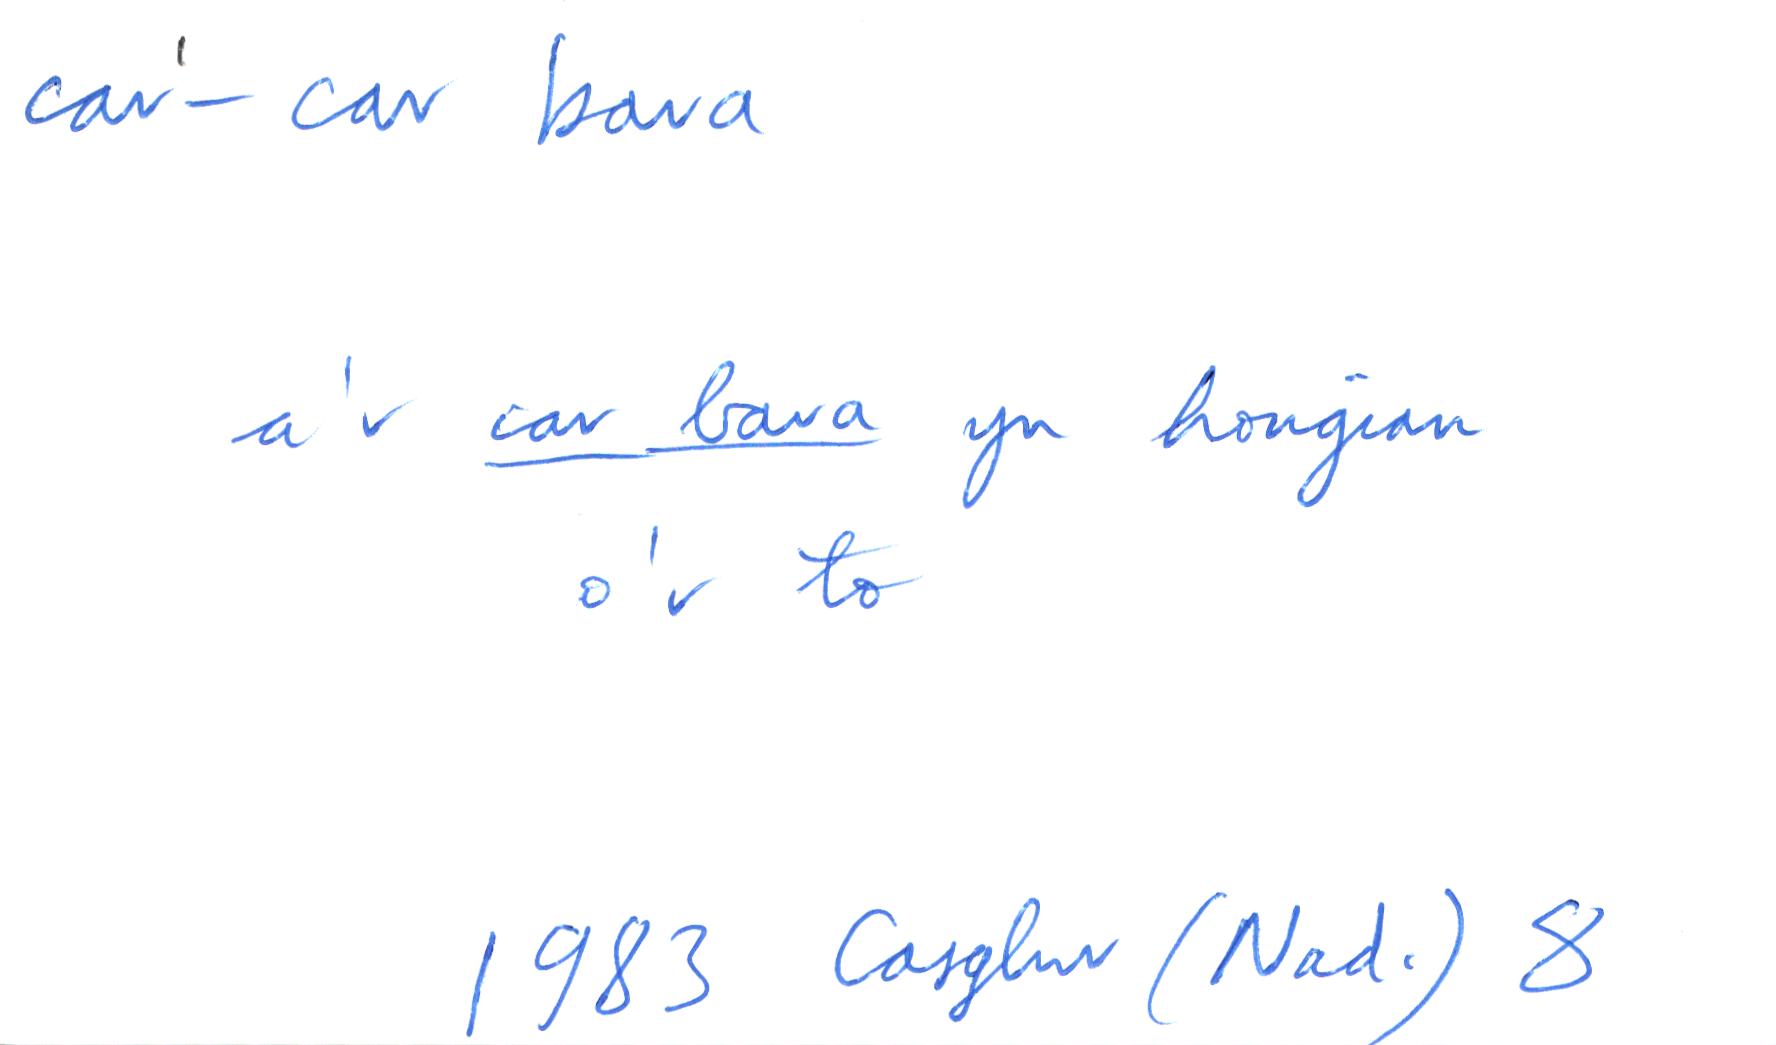 car¹ - car bara
a'r car bara yn hongian
o'r to
1983 Casglwr (Nad.) 8